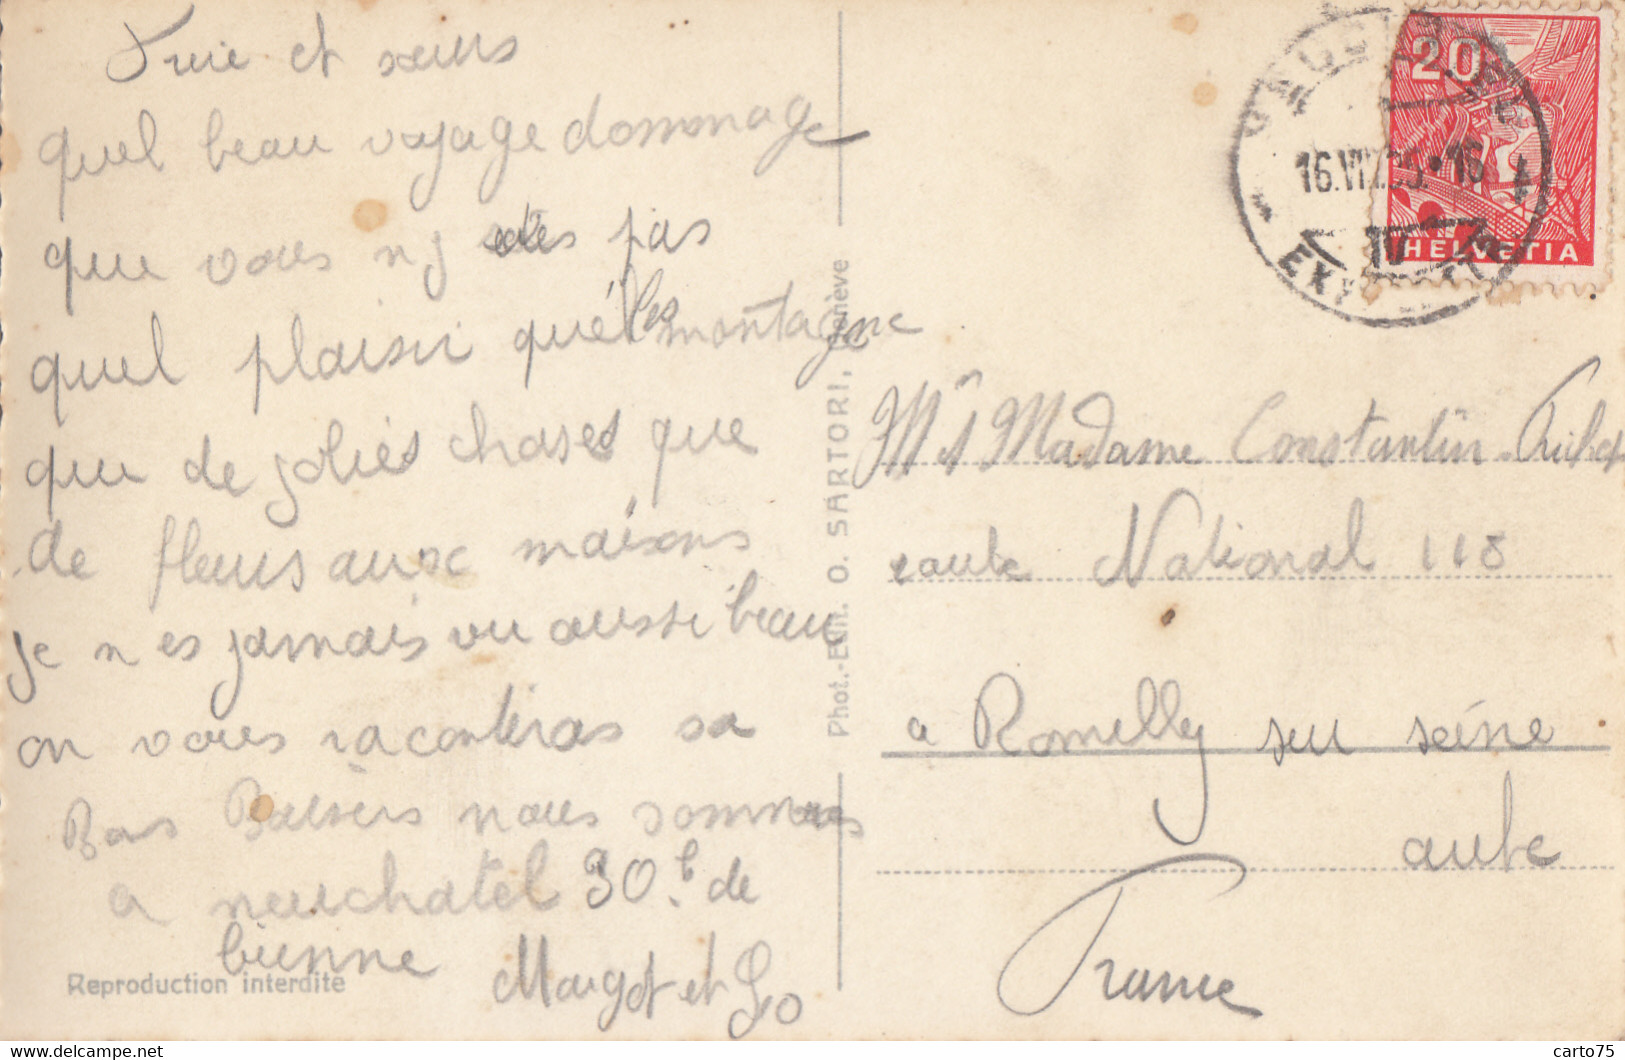 et sœurs
quel beau voyage dommage
que vous n y etes pas
quel plaisir qué les montagne
que de jolies choses que
de fleurs aux maisons
je n es jamais vu aussi beau
on vous raconteras sa
Bons Baisers nous sommes
a neuchatel 30 de
bienne Margot et Go
Reproduction interdite
Phot.-Edit. O. SARTORI, Genève
20
HELVETIA
16.VII.35.•16
IV
Mr et Madame Constantin
route National 118
a Romilly sur seine
aube
France
http://www.delcampe.net
carto75